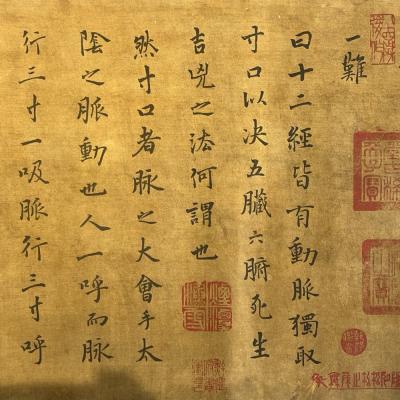 一難
曰十二經皆有動脈獨取
寸口以决五臟六腑死生
吉兇之法何謂也
然寸口者脉之大會手太
陰之脈動也人一呼而脈
行三寸一吸脈行三寸呼